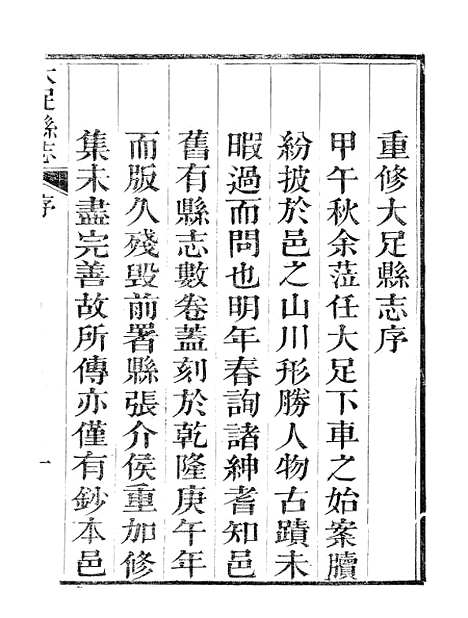 重修大足縣志序
甲午秋余蒞任大足下車之始案牘
紛披於邑之山川形勝人物古蹟未
暇過而問也明年春詢諸紳耆知邑
舊有縣志數卷蓋刻於乾隆庚午年
而版久殘毀前署縣張介侯重加修
集未盡完善故所傳亦僅有鈔本邑
大足縣志
序
一